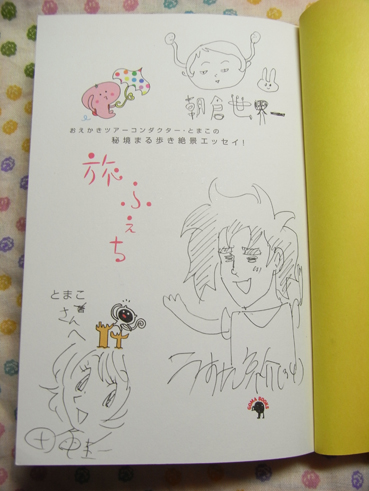 朝倉世界一
おえかきツアーコンダクター・とまこの
秘境まる歩き絶景エッセイ!
旅ふぇち
とまこ
さんへ
GOMA BOOKS